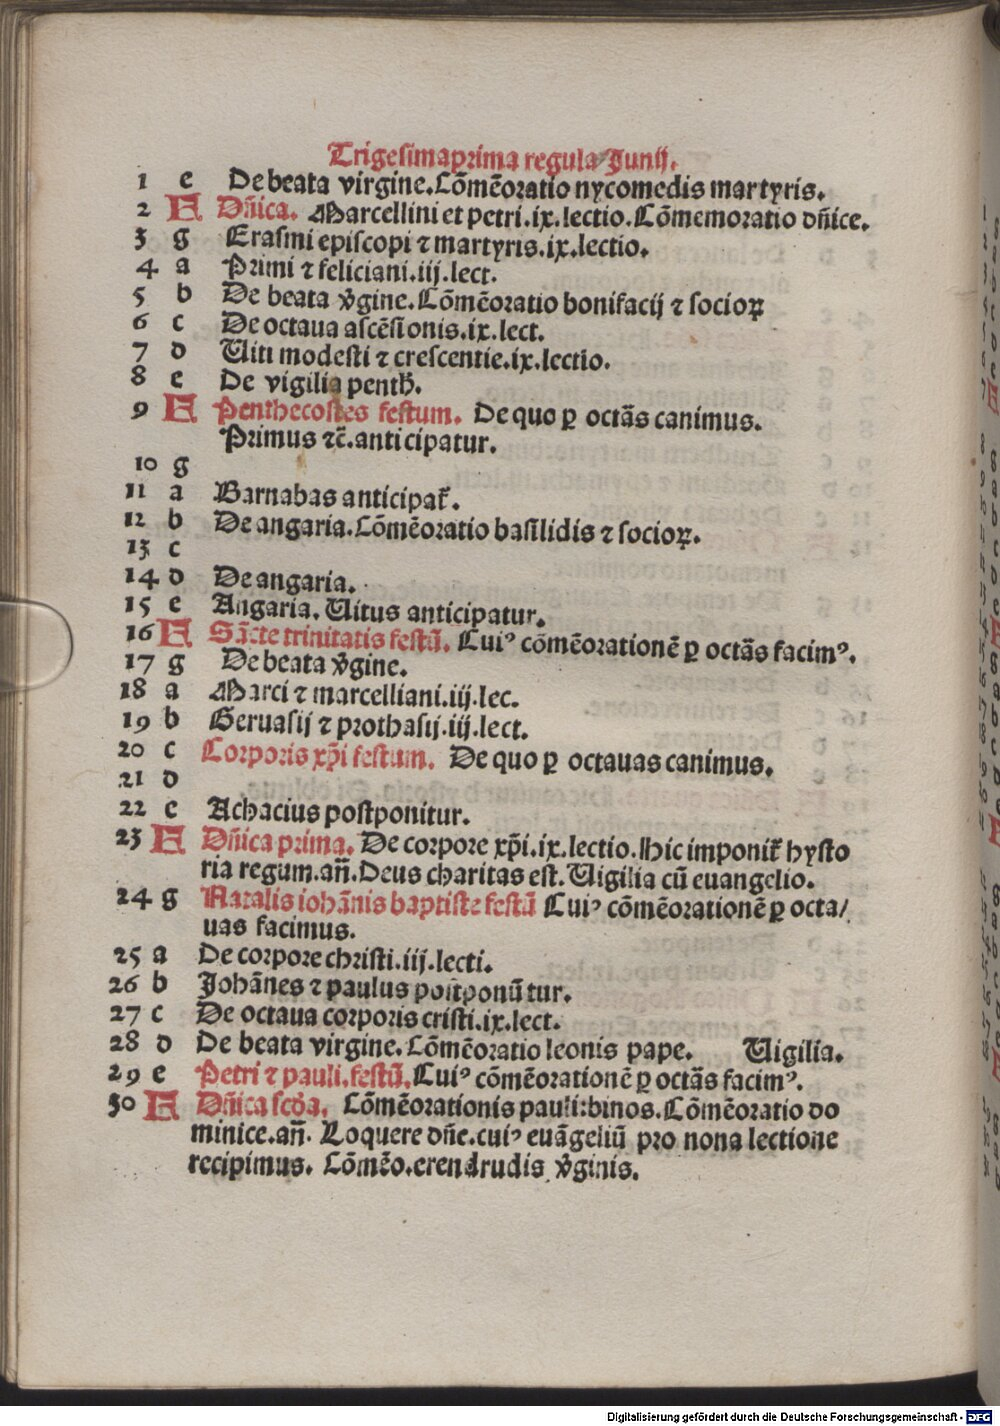 Trigesimaprima regula Junij.
1 e De beata virgine. Cōmēoratio nycomedis martyris.
2 F Dn̄ica. Marcellini et petri. ix. lectio. Cōmemoratio dn̄ice.
3 g Erasmi episcopi ⁊ martyris. ix. lectio.
4 a Primi ⁊ feliciani. iij. lect.
5 b De beata v̄gine. Cōmēoratio bonifacij ⁊ socioꝝ
6 c De octaua ascēsionis. ix. lect.
7 d Uiti modesti ⁊ crescentie. ix. lectio.
8 e De vigilia penth̄.
9 F Penthecostes festum. De quo ꝑ octās canimus.
Primus ⁊c̄. anticipatur.
10 g
11 a Barnabas anticipat̄.
12 b De angaria. Cōmēoratio basilidis ⁊ socioꝝ.
13 c
14 d De angaria.
15 e Angaria. Uitus anticipatur.
16 F Sācte trinitatis festū. Cuiꝰ cōmēorationē ꝑ octās facimꝰ.
17 g De beata v̄gine.
18 a Marci ⁊ marcelliani. iij. lec.
19 b Geruasij ⁊ prothasij. iij. lect.
20 c Corporis xp̄i festum. De quo ꝑ octauas canimus.
21 d
22 e Achacius postponitur.
23 F Dn̄ica prima. De corpore xp̄i. ix. lectio. Hic imponit̄ hysto
ria regum. an̄. Deus charitas est. Uigilia cū euangelio.
24 g Natalis iohānis baptiste festū Cuiꝰ cōmēorationē ꝑ octa/
uas facimus.
25 a De corpore christi. iij. lecti.
26 b Johānes ⁊ paulus postponūtur.
27 c De octaua corporis cristi. ix. lect.
28 d De beata virgine. Cōmēoratio leonis pape. Uigilia.
29 e Petri ⁊ pauli. festū. Cuiꝰ cōmēorationē ꝑ octās facimꝰ.
30 F Dn̄ica scd̄a. Cōmēorationis pauli: binos. Cōmēoratio do
minice. an̄. Loquere dn̄e. cuiꝰ euāgeliū pro nona lectione
recipimus. Cōmēo. erendrudis v̄ginis.
Digitalisierung gefördert durch die Deutsche Forschungsgemeinschaft - DFG